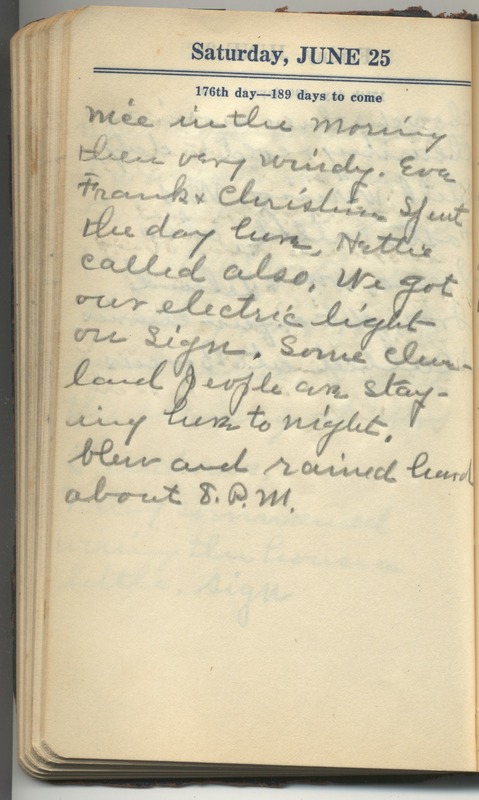 Saturday, JUNE 25
176th day—189 days to come
nice in the morning
then very windy. Eva
Frank & Christina Spent
the day here, Nettie
called also. We got
our electric light
on sign. Some Cleve-
land people are stay-
ing here to night.
blew and rained hard
about 8. P.M.
sign